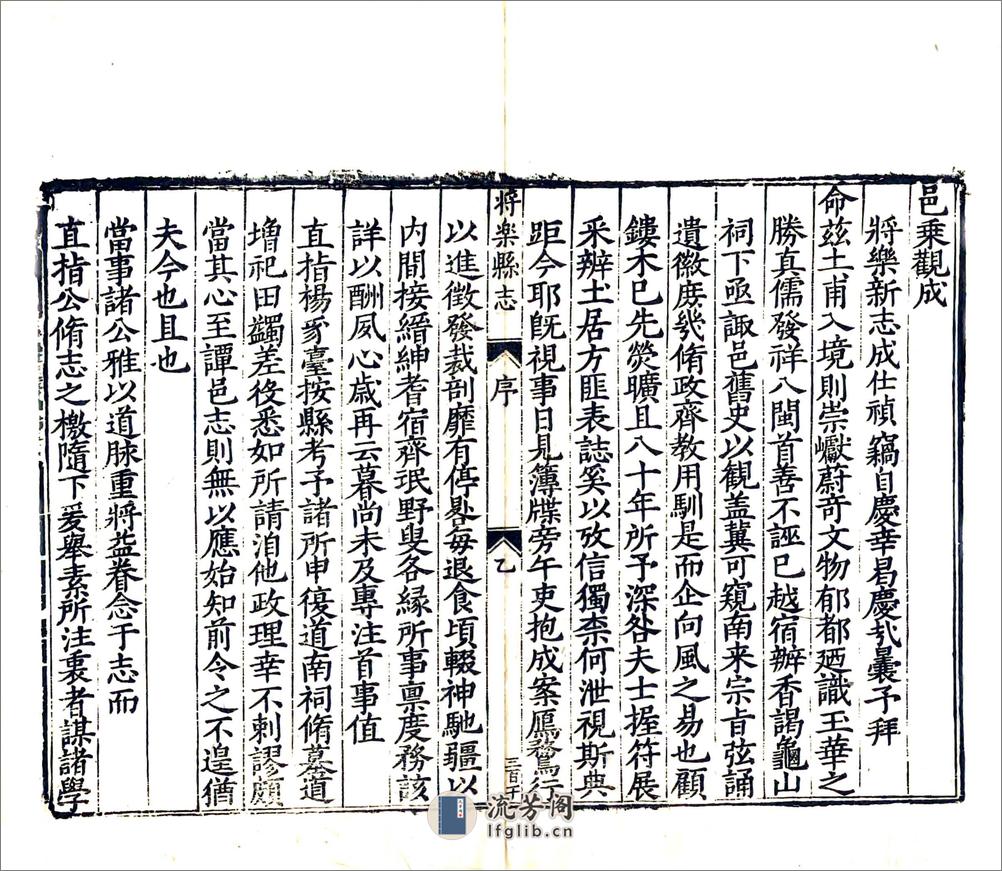 邑乘觀成
將樂新志成仕禎竊自慶幸曷慶㢤曩予拜
命兹土甫入境則崇巘蔚奇文物郁都廼識玉華之
勝真儒發祥八閩首善不誣已越宿辦香謁龜山
祠下亟諏邑舊史以觀盖兾可窺南来宗旨弦誦
遺徽庻㡬脩政齊教用馴是而企向風之易也顧
鏤木巳先熒曠且八十年所予深咎夫士握符展
釆辨土居方匪表誌奚以攷信獨柰何泄視斯典
距今耶旣視事日見簿牒旁午吏抱成案鴈鶩行
將樂縣志
序
乙
以進徵發裁剖靡有停晷每退食頃輟神馳疆以
内間接縉紳耆宿齊珉野叟各縁所事禀度務該
詳以酬夙心歲再云暮尚未及專注首事值
直指楊豸臺按縣考予諸所申復道南祠脩墓道
增祀田蠲差役悉如所請洎他政理幸不剌謬顧
當其心至譚邑志則無以應始知前令之不遑猶
夫今也且也
當事諸公雅以道脉重將益眷念于志而
直指公脩志之檄隨下爰舉素所注裏者謀諸學
流芳阁
lfglib.cn